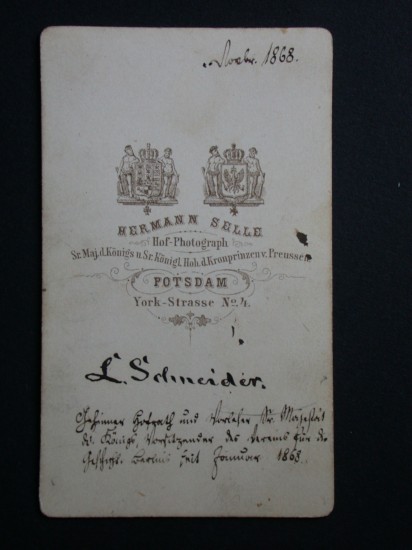 Novbr. 1868.
HERMANN SELLE
Hof-Photograph
Sr. Maj. d. Königs u. Sr. Königl. Hoh. d. Kronprinzen v. Preussen
POTSDAM
York-Strasse No. 4.
L. Schneider.
Geheimer Hofrath und Vorleser Sr. Majestät
des Königs, Vorsitzender des Vereins für die
Geschichte Berlins seit Januar 1865.